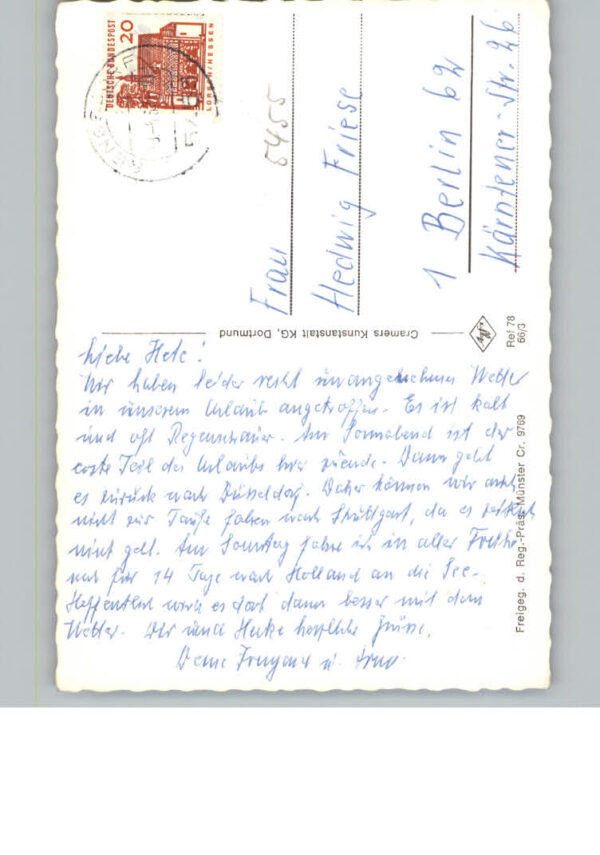 DEUTSCHE BUNDESPOST
20
LORSCH/HESSEN
5455
Frau
Hedwig Friese
1 Berlin 62
Kärntener-Str. 26
Cramers Kunstanstalt KG, Dortmund
Ref 78
66/3
Freigeg. d. Reg.-Präs. Münster Cr. 9769
Liebe Hete!
Wir haben leider recht unangenehmes Wetter
in unserem Urlaub angetroffen. Es ist kalt
und oft Regenschauer. Am Sonnabend ist der
erste Teil des Urlaubs hier zuende. Dann geht
es zurück nach Düsseldorf. Daher können wir auch
nicht zur Taufe fahren nach Stuttgart, da es zeitlich
nicht geht. Am Sonntag fahre ich in aller Frühe
nur für 14 Tage nach Holland an die See.
Hoffentlich wird es dort dann besser mit dem
Wetter. Dir und Heike herzliche Grüsse.
Deine Irmgard u. Arno